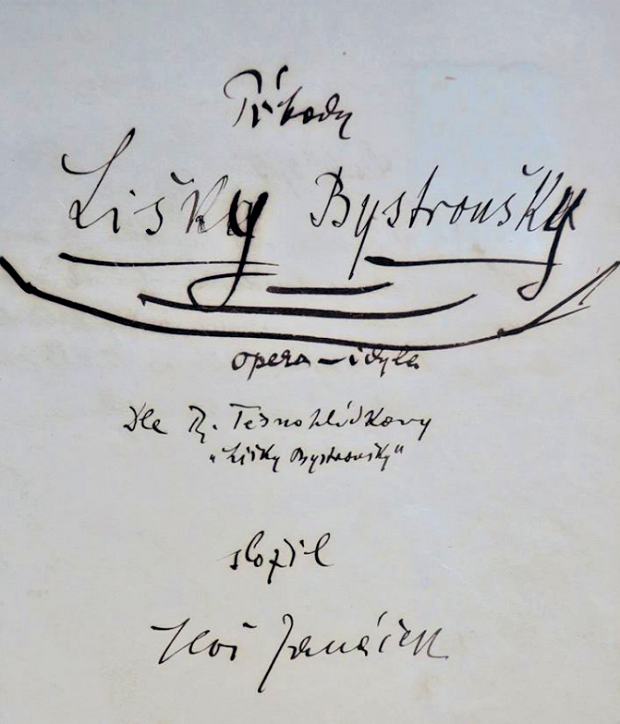 Příhody
Lišky Bystroušky
opera – idyla
Dle R. Těsnohlídkovy
„Lišky Bystroušky"
složil
Leoš Janáček